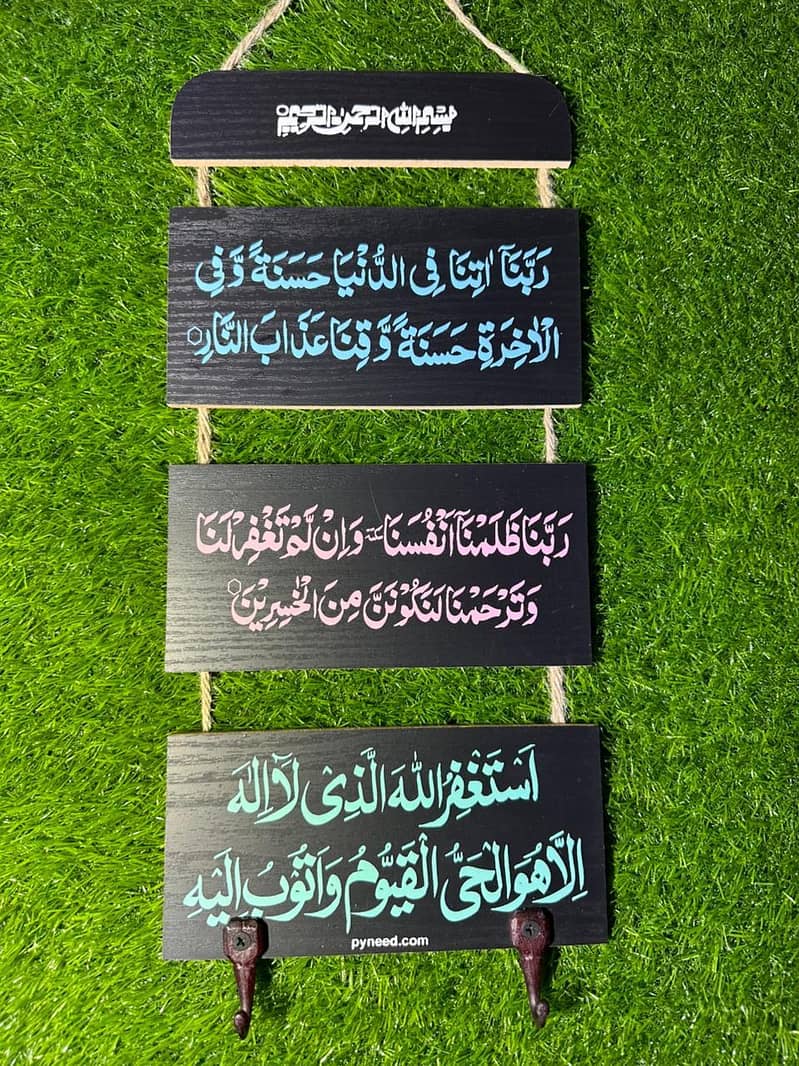 بِسْمِ اللهِ الرَّحْمٰنِ الرَّحِيْمِ
رَبَّنَآ اٰتِنَا فِى الدُّنْيَا حَسَنَةً وَّ فِى
الْاٰخِرَةِ حَسَنَةً وَّ قِنَا عَذَابَ النَّارِ
رَبَّنَا ظَلَمْنَآ اَنْفُسَنَا وَاِنْ لَّمْ تَغْفِرْ لَنَا
وَتَرْحَمْنَا لَنَكُوْنَنَّ مِنَ الْخٰسِرِيْنَ
اَسْتَغْفِرُ اللهَ الَّذِىْ لَآ اِلٰهَ
اِلَّا هُوَ الْحَىُّ الْقَيُّوْمُ وَاَتُوْبُ اِلَيْهِ
pyneed.com